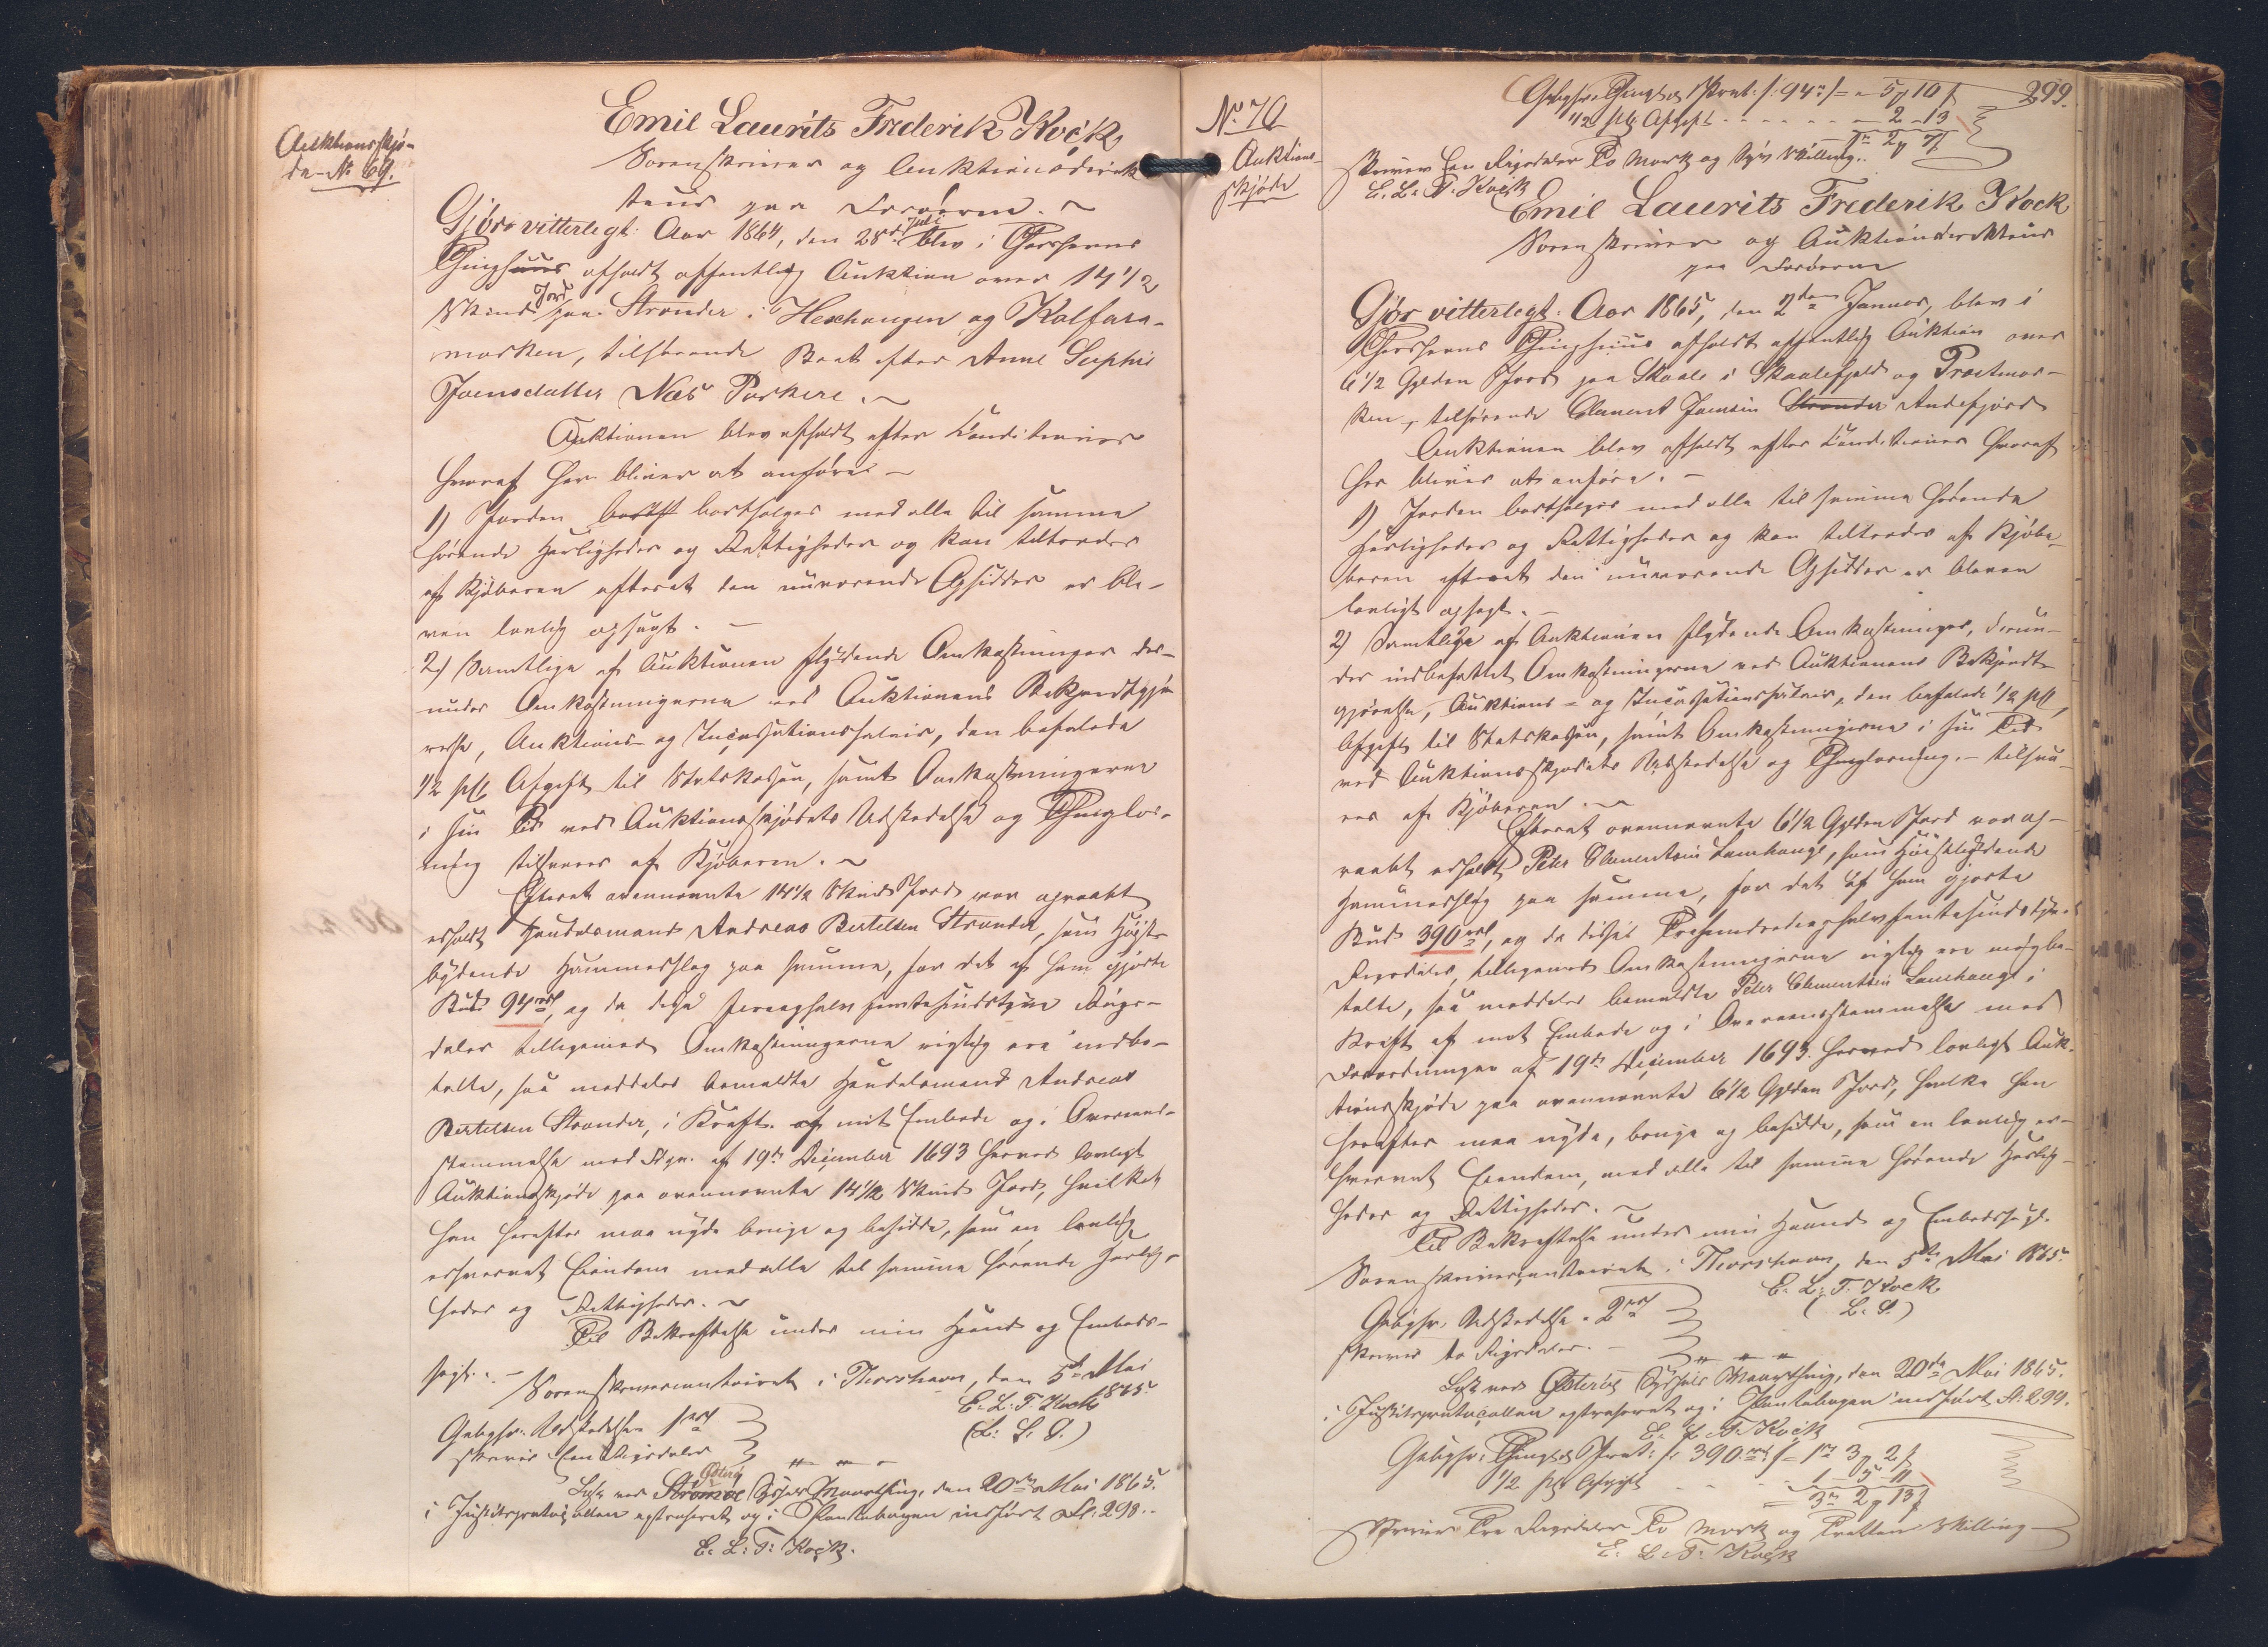 Auktionsskjö-
de No 69.
Emil Laurits Frederik Kock
Sorenskriver og Auktionsdirek
teur paa Færöerne.
Gjör vitterlegt: Aar 1864, den 28de Juli blev i Thorshavns
Thinghuus afholdt offentlig Auktion over 14 1/2
Skind Jord paa Strænder i Heshangen og Kalfara-
marken, tilhørende Boet efter Anne Sophie
Joensdatter Næs Porkere.
Auktionen blev afholdt efter Conditioner
hvoraf her bliver at anføre
1) Jorden bortsælges med alle til samme
hørende Herligheder og Rettigheder og kan tiltrædes
af Kjøberen efterat den nuværende Opsidder er ble-
ven lovlig opsagt.
2) Samtlige af Auktionen flydende Omkostninger der-
under Omkostningerne ved Auktionens Bekjendtgjø
relse, Auktions- og Incassationssalair, den befalede
1/2 pCt Afgift til Statskassen, samt Omkostningerne
i sin Tid ved Auktionsskjødets Udstedelse og Thinglæs-
ning tilsvares af Kjøberen.
Efterat ovennævnte 14 1/2 Skind Jord var opraabt
erholdt Handelsmand Andreas Bertelsen Strænder, som Høist-
bydende Hammerslag paa samme, for det af ham gjorte
Bud 94 rd, og da disse fireoghalvfemtesindstyve Rigs-
daler tilligemed Omkostningerne rigtig ere indbe-
talte, saa meddeles bemeldte Handelsmand Andreas
Bertelsen Strænder, i Kraft af mit Embede og i Overeens-
stemmelse med Fdgn. af 19de December 1693 herved lovligt
Auktionsskjøde paa ovennævnte 14 1/2 Skind Jord, hvilket
han herefter maa nyde bruge og besidde, som en lovlig
erhvervet Eiendom med alle til samme hørende Herlig-
heder og Rettigheder.
Til Bekræftelse under min Haand og Embeds-
segl.
Sorenskrivercontoiret i Thorshavn, den 5te Mai
1865
E. L. F. Kock
(L. S.)
Gebyhr. Udstedelse 1 rd
skriver Een Rigsdaler
Læst ved Strömöe Østerö Syssels Vaarthing, den 20de Mai 1865.
i Justitsprotocollen extraheret og i Pantebogen indført Fol. 298.
E. L. F. Kock.
299.
Gebyhr. Thingl. og Prot: /: 94 rd /= - 5 10
1/2 pCt Afgift - - - - - 2 - 13
1 rd 2 7
skriver Een Rigsdaler To Mark og Syv Skilling.
E. L. F. Kock
No 70
Auktions-
skjöde
Emil Laurits Frederik Kock
Sorenskriver og Auktionsdirekteur
paa Færøerne
Gjör vitterlegt: Aar 1865, den 2den Januar, blev i
Thorshavns Thinghuus afholdt offentlig Auktion over
6 1/2 Gylden Jord paa Skaale i Skaalefjeld og Præstmar-
ken, tilhørende Clement Joensen Strænder Andefjord
Auktionen blev afholdt efter Conditioner hvoraf
her bliver at anføre.
1) Jorden bortsælges med alle til samme hørende
Herligheder og Rettigheder og kan tiltrædes af Kjøbe-
beren efterat den nuværende Opsidder er bleven
lovligt opsagt.
2) Samtlige af Auktionen flydende Omkostninger, derun-
der indbefattet Omkostningerne ved Auktionens Bekjendt-
gjørelse, Auktions- og Incassationssalair, den befalede 1/2 pCt
Afgift til Statskassen, samt Omkostningerne i sin Tid
ved Auktionsskjødets Udstedelse og Thinglæsning. - tilsva-
res af Kjøberen.
Efterat ovennævnte 6 1/2 Gylden Jord var op-
raabt erholdt Peter Clementsen Lamhauge, som Høistbydende
Hammerslag paa samme, for det af ham gjorte
Bud 390 rd, og da disse Trehundredeoghalvfemtesindstyve
Rigsdaler, tilligemed Omkostningerne rigtig ere indbe-
talte, saa meddeles bemeldte Peter Clementsen Lamhauge i
Kraft af mit Embede og i Overeensstemmelse med
Forordningen af 19de December 1693. herved lovligt Auk-
tionsskjøde paa ovennævnte 6 1/2 Gylden Jord, hvilke han
herefter maa nyde, bruge og besidde, som en lovlig er-
hvervet Eiendom, med alle til samme hørende Herlig-
heder og Rettigheder.
Til Bekræftelse under min Haand og Embedssegl.
Sorenskrivercontoiret i Thorshavn, den 5te Mai 1865
E. L. F. Kock
(L. S.)
Gebyhr. Udstedelse - 2 rd
skriver to Rigsdaler.
Læst ved Østerös Syssels Vaarthing, den 20de Mai 1865.
i Justitsprotocollen extraheret og i Pantebogen indført Fol. 299.
E. L. F. Kock
Gebyhr. Thingl. og Prot: /: 390 rd /= 1 rd 3 2
1/2 pCt Afgift - - 1 - 5 - 11
= 3 rd 2 13
Skriver Tre Rigsdaler To Mark og Tretten Skilling
E. L. F. Kock